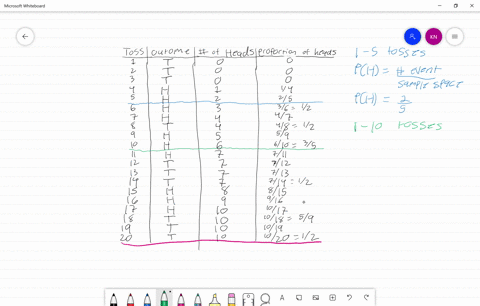 Microsoft Whiteboard
KN
Toss outcome # of Heads proportion of heads
1 T 0 0
2 T 0 0
3 T 0 0
4 H 1 1/4
5 H 2 2/5
6 H 3 3/6 = 1/2
7 H 4 4/7
8 T 4 4/8 = 1/2
9 H 5 5/9
10 H 6 6/10 = 3/5
11 H 7 7/11
12 T 7 7/12
13 T 7 7/13
14 T 7 7/14 = 1/2
15 H 8 8/15
16 H 9 9/16
17 H 10 10/17
18 T 10 10/18 = 5/9
19 T 10 10/19
20 T 10 10/20 = 1/2
1-5 tosses
P(H) = # event
sample space
P(H) = 2
5
1-10 tosses